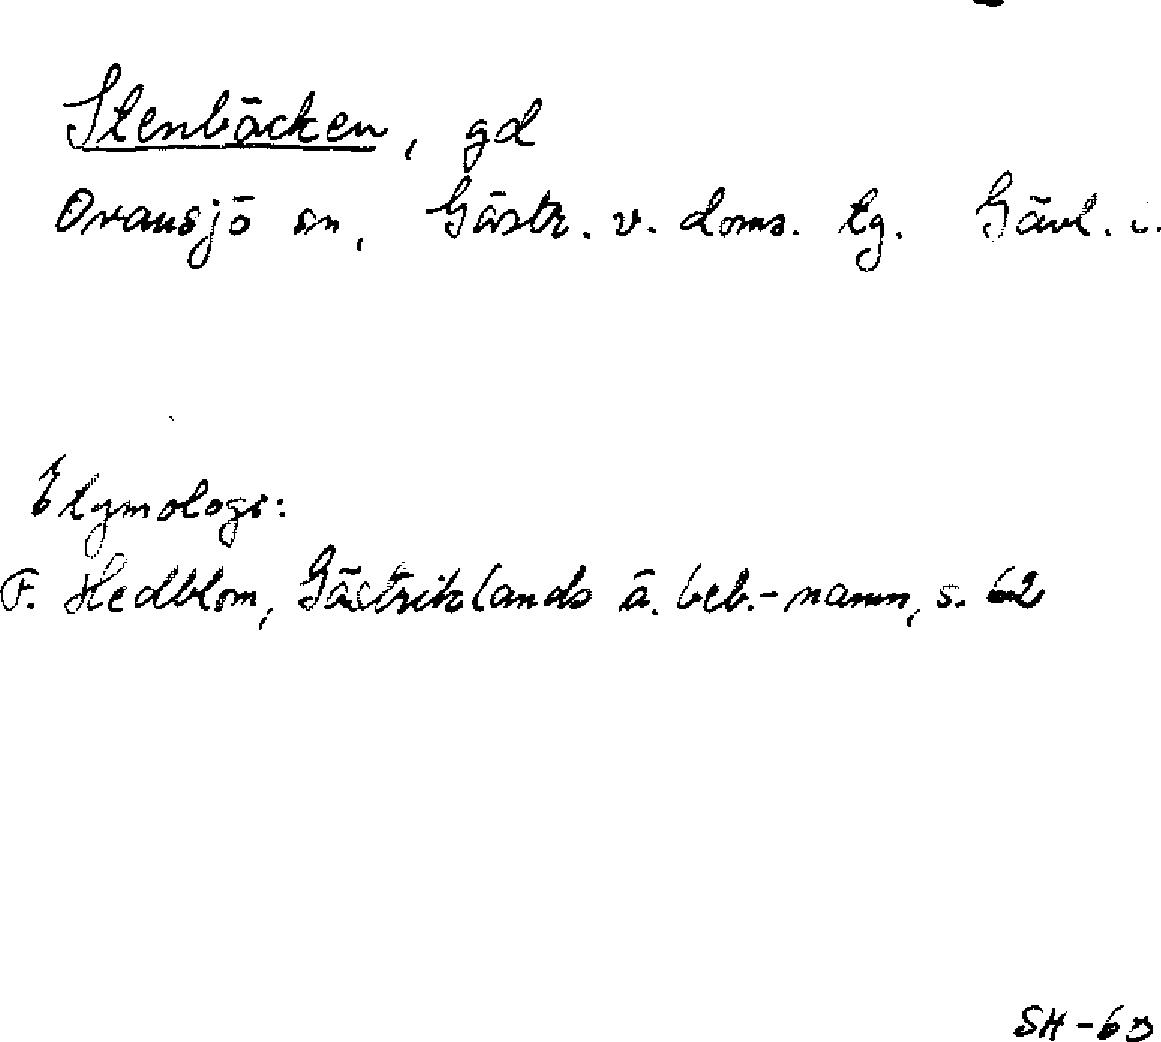 Stenbäcken, gd
Ovansjö sn, Gästr. v. doms. tg. Gävl. l.
Etymologi:
F. Hedblom, Gästriklands ä. beb.-namn, s. 62
SH-63